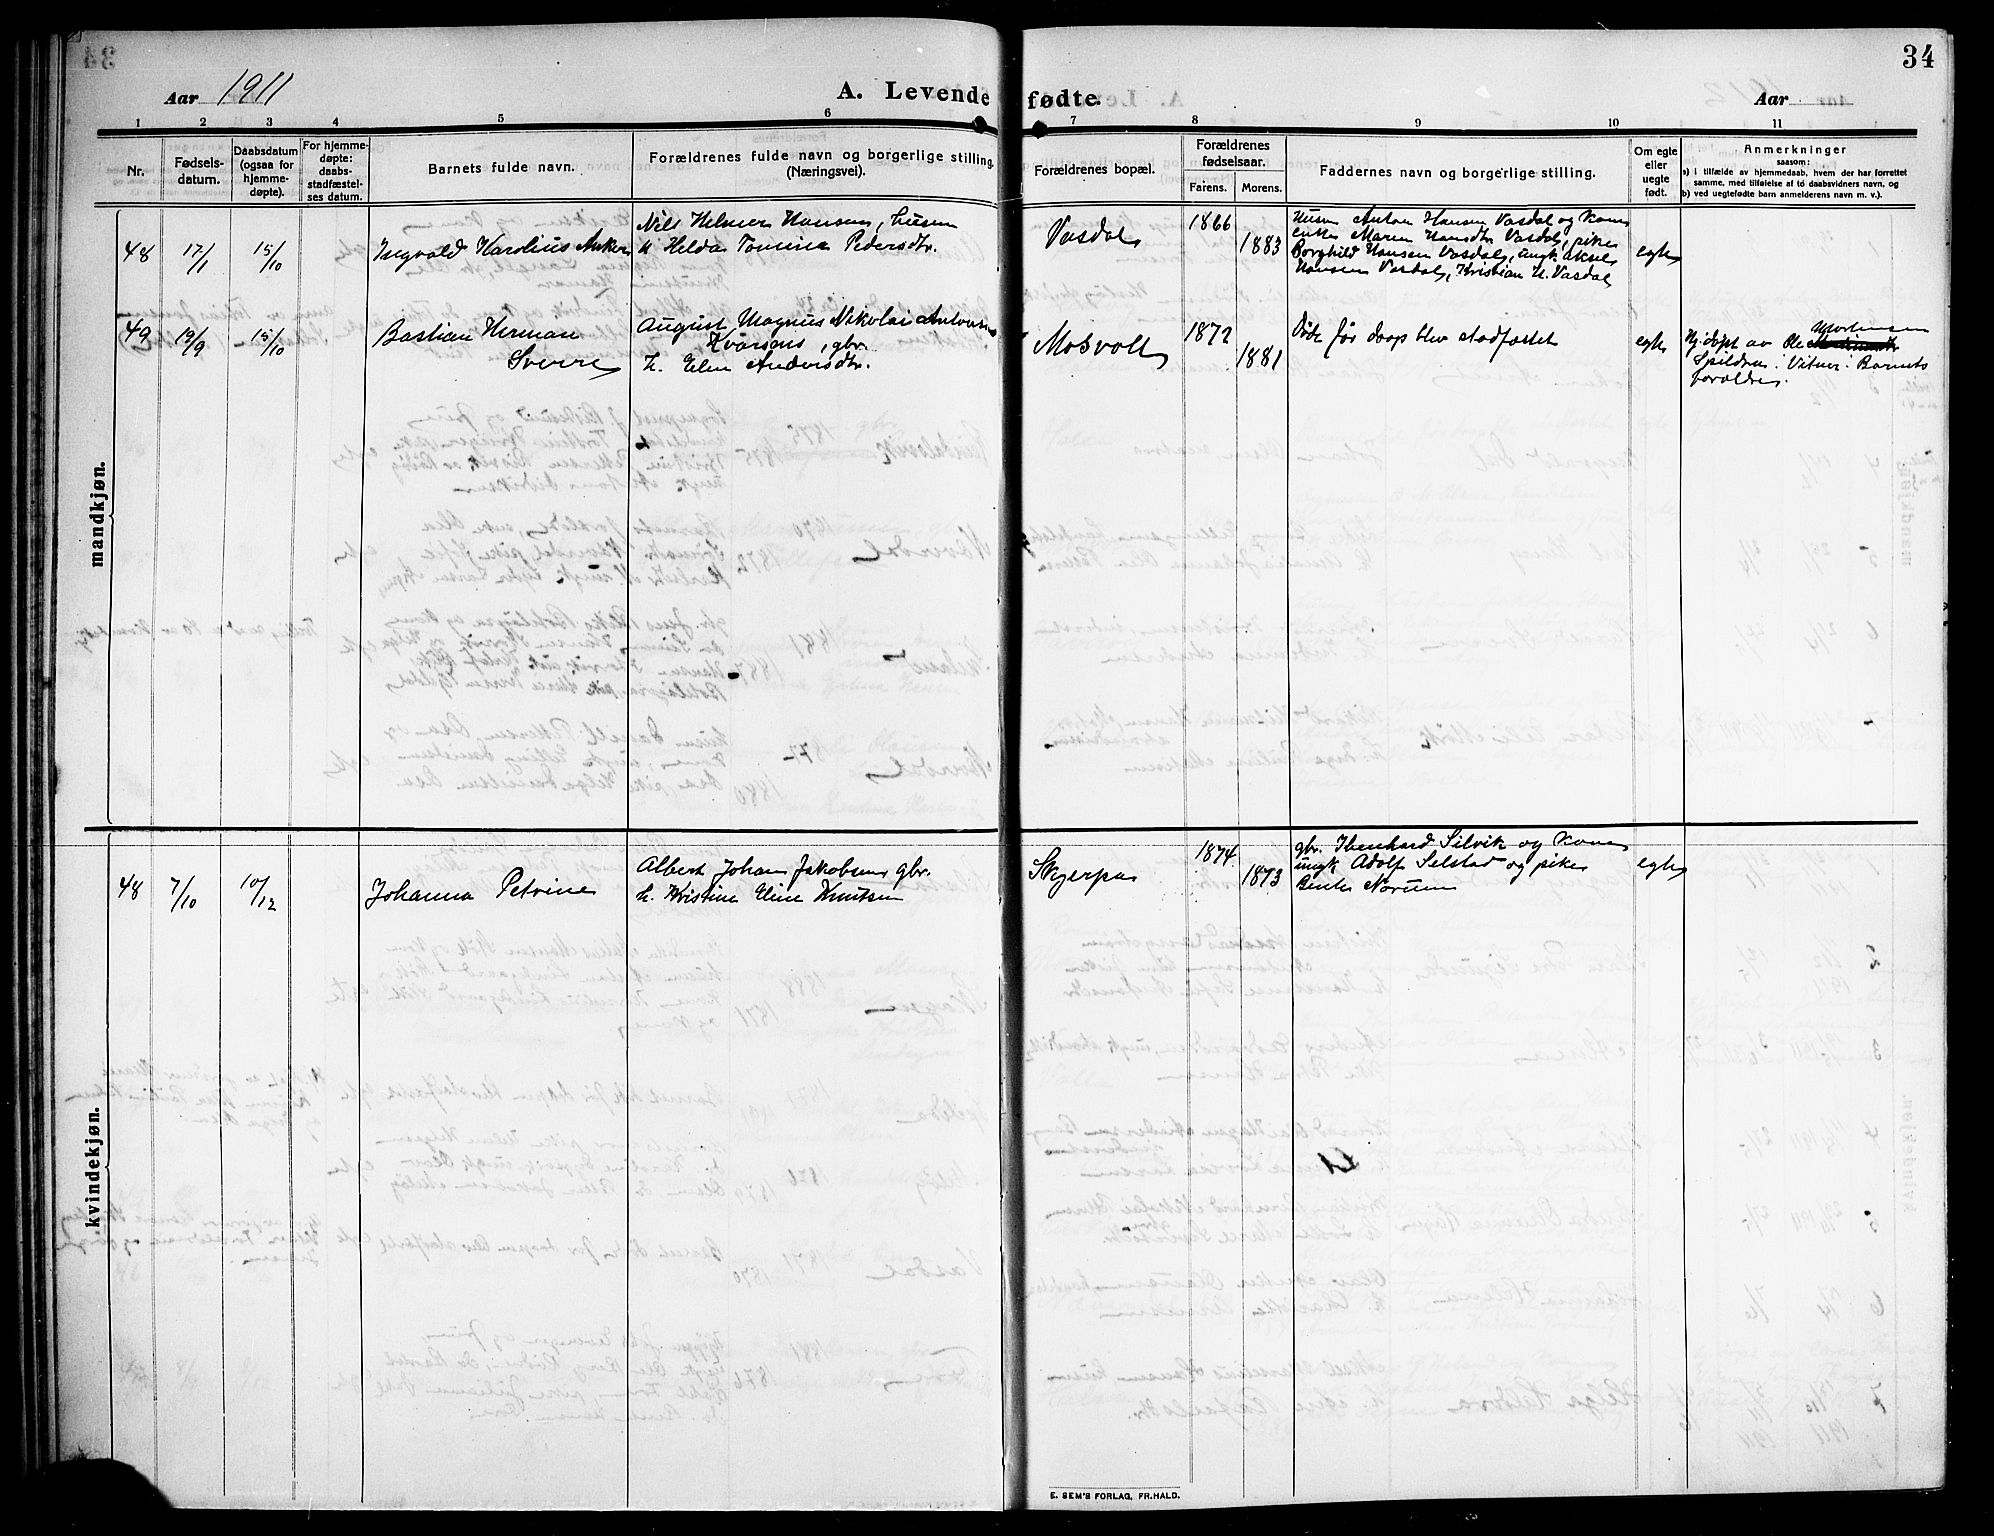 34
Aar 1911
A. Levende fødte.
Aar
1 2 3 4 5 6 7 8 9 10 11
Nr.
Fødsels-
datum.
Daabsdatum
(ogsaa for
hjemme-
døpte).
For hjemme-
døpte:
daabs-
stadfæstel-
ses datum.
Barnets fulde navn.
Forældrenes fulde navn og borgerlige stilling.
(Næringsvei).
Forældrenes bopæl.
Forældrenes
fødselsaar.
Farens. Morens.
Faddernes navn og borgerlige stilling.
Om egte
eller
uegte
født.
Anmerkninger
saasom:
a) i tilfælde av hjemmedaab, hvem der har forrettet
samme, med tilføielse af to daabsvidners navn, og
b) ved uegtefødte barn anmelderens navn m. v.).
mandkjøn.
48 17/1 15/10 Ingvald Karolius Anker
Nils Helmer Hansen, husm
H. Helda Tomine Pedersdtr.
Vasdal
1866
1883
Husm Anton Hansen Vasdal og Kone
enke Maren Hansdtr Vasdal, pike
Borghild Hansen Vasdal, ungk Aksel
Hansen Vasdal, Kristian H. Vasdal
egte
49 19/9 15/10 Bastian Herman
Sverre
August Magnus Nikolai Antonsen
Kvarsnes, gbr.
H. Elen Andersdtr.
Mosvoll
1872
1881
Døde før daap blev stadfæstet
egte
Hj.døpt av Ole Mortensen
Spildra. Vitner: Barnets
foreldre.
kvindekjøn.
48 7/10 10/12 Johanna Petrine
Albert Johan Jakobsen gbr.
H. Kristine Eline Knutsen
Skjerpa
1874
1873
gbr. Ibenhard Silvik og Kone
ungk Adolf Selstad og pike
Bente Norum
egte
E. SEM'S FORLAG, FR.HALD.